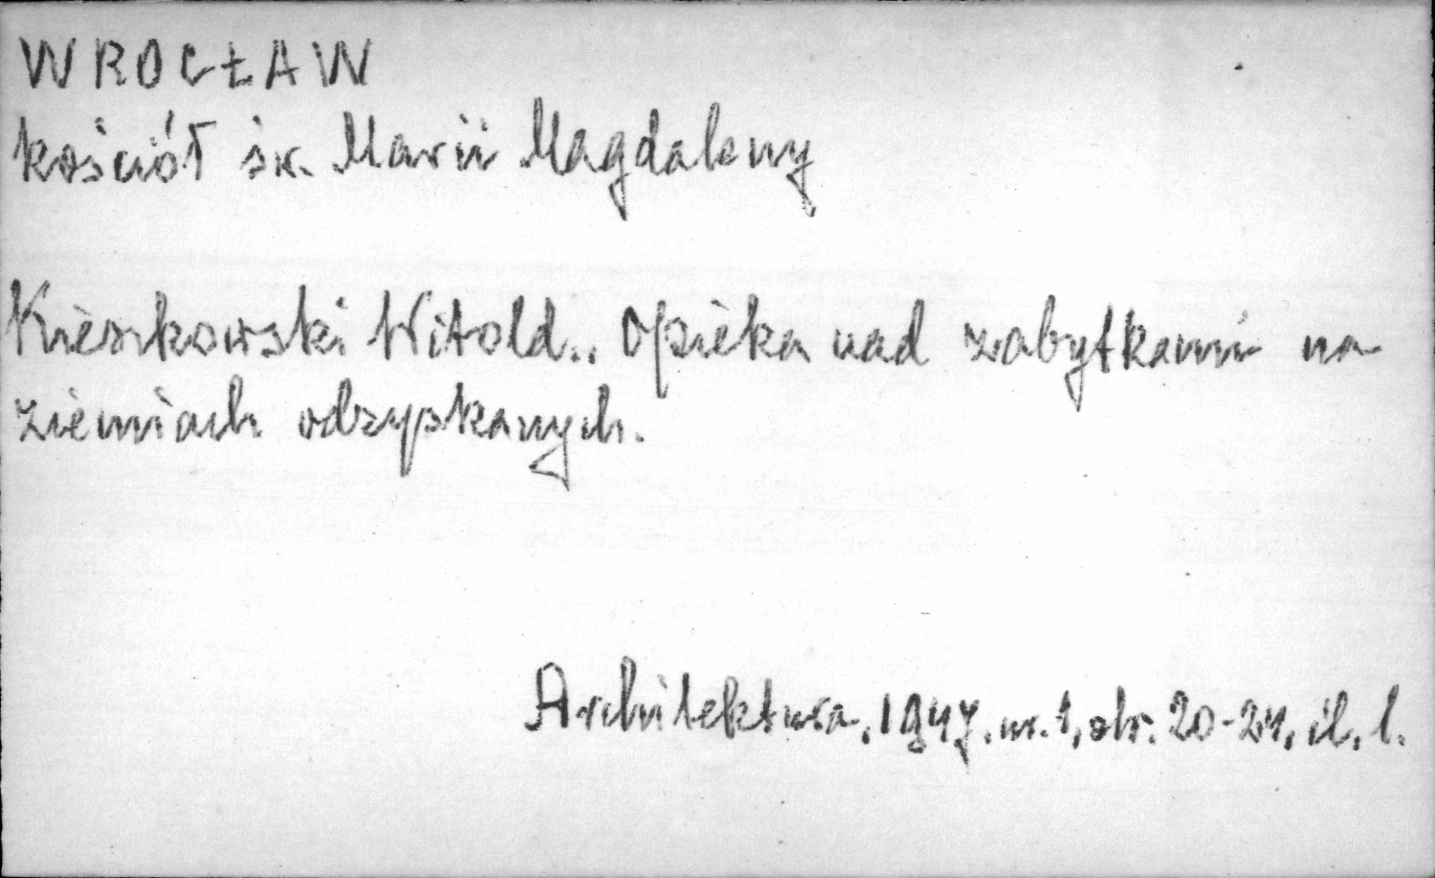 WROCŁAW
kościół św. Marii Magdaleny
Kieszkowski Witold.. Opieka nad zabytkami na
ziemiach odzyskanych.
Architektura, 1947, nr. 1, str. 20-24, il. 1.